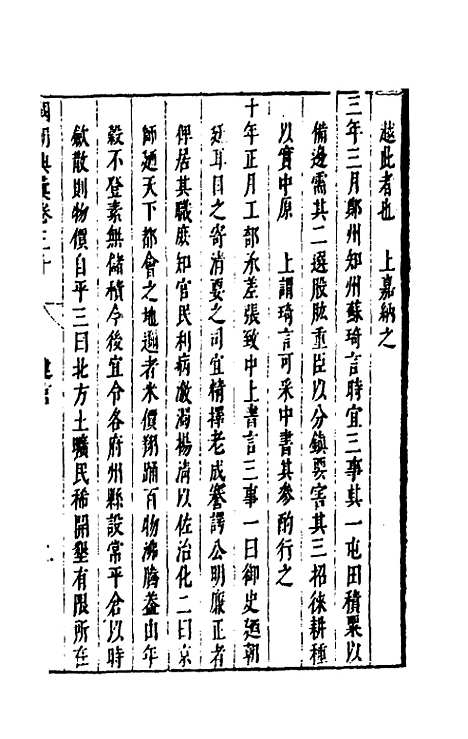 越此者也　上嘉納之
三年三月鄭州知州蘇琦言時宜三事其一屯田積粟以
備邊需其二選股肱重臣以分鎮要害其三招徠耕種
以實中原　上謂琦言可采中書其參酌行之
十年正月工部承差張致中上書言三事一曰御史廼朝
廷耳目之寄清要之司宜精擇老成謇諤公明廉正者
俾居其職庶知官民利病激濁揚清以佐治化二曰京
師廼天下都會之地邇者米價翔踊百物沸騰蓋由年
穀不登素無儲積今後宜令各府州縣設常平倉以時
斂散則物價自平三曰北方土曠民稀開墾有限所在
國朝典彙卷三十